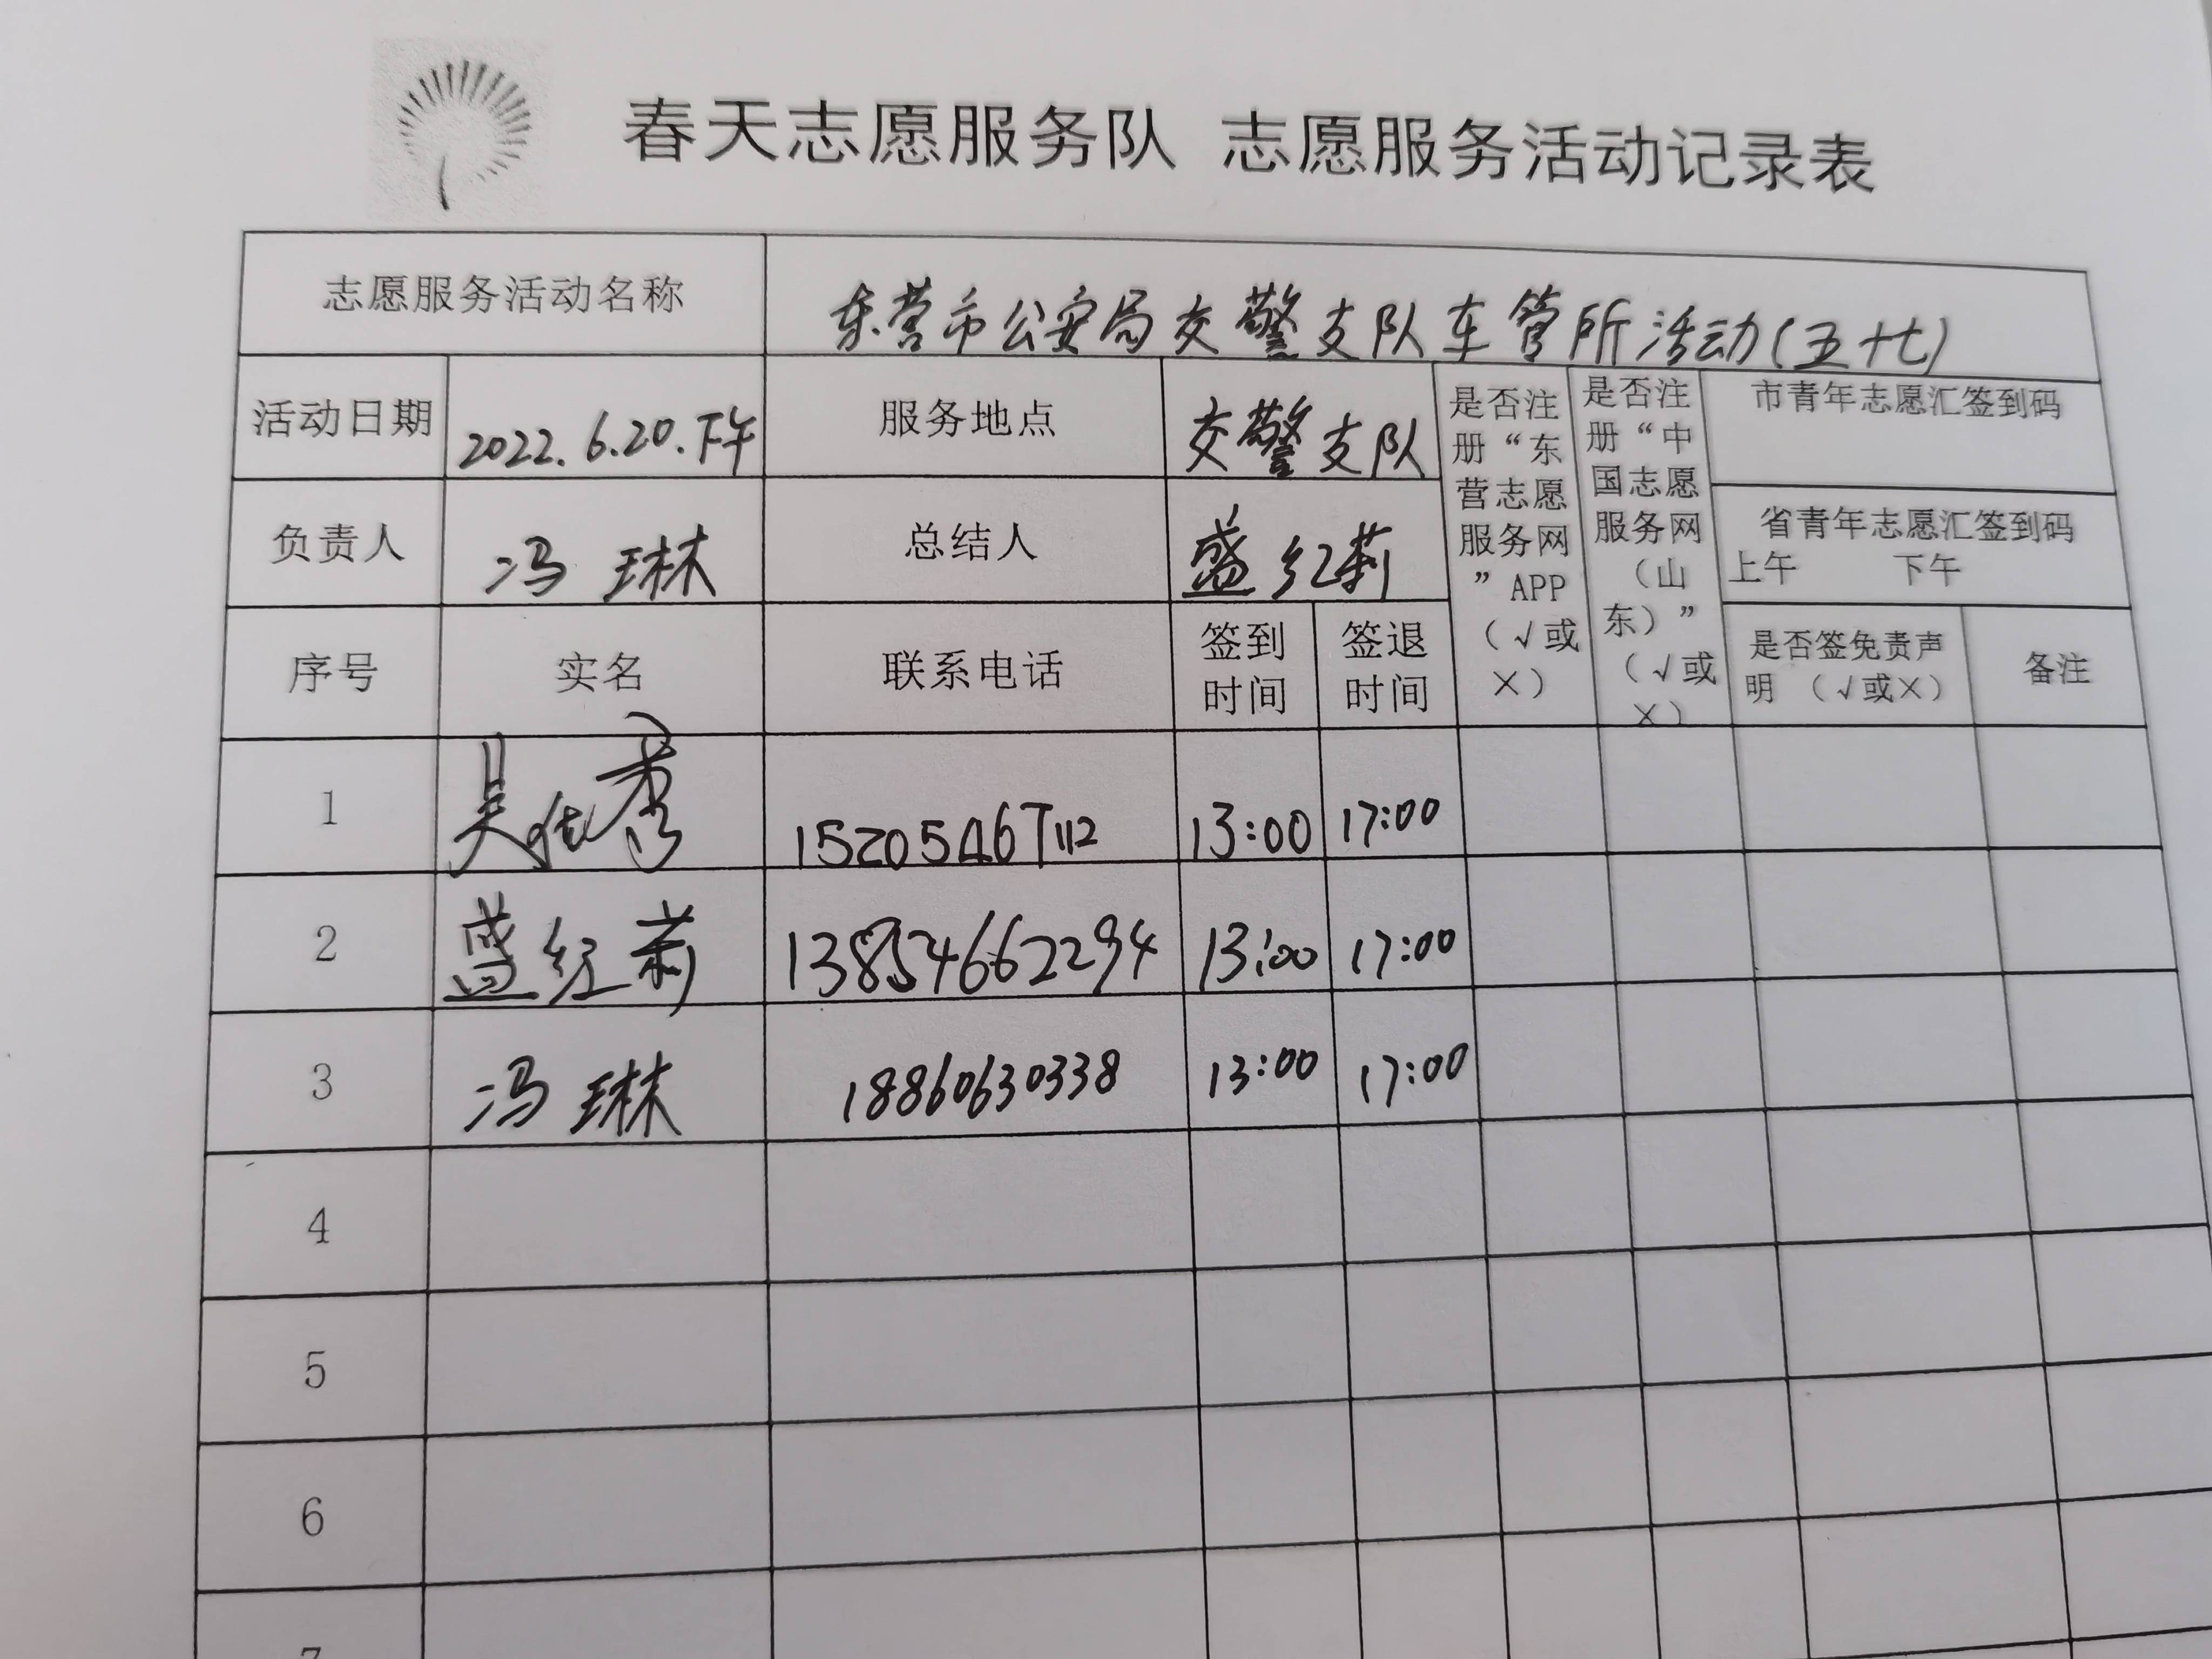 春天志愿服务队 志愿服务活动记录表
志愿服务活动名称 东营市公安局交警支队车管所活动(五十七)
活动日期 2022.6.20.下午 服务地点 交警支队 是否注册“东营志愿服务网”APP（√或×） 是否注册“中国志愿服务网（山东）”（√或×） 市青年志愿汇签到码
负责人 冯琳 总结人 盛红莉 省青年志愿汇签到码
上午 下午
序号 实名 联系电话 签到时间 签退时间 是否签免责声明 （√或×） 备注
1 吴 秀 15205467112 13:00 17:00
2 盛红莉 13854662294 13:00 17:00
3 冯琳 18860630338 13:00 17:00
4
5
6
7